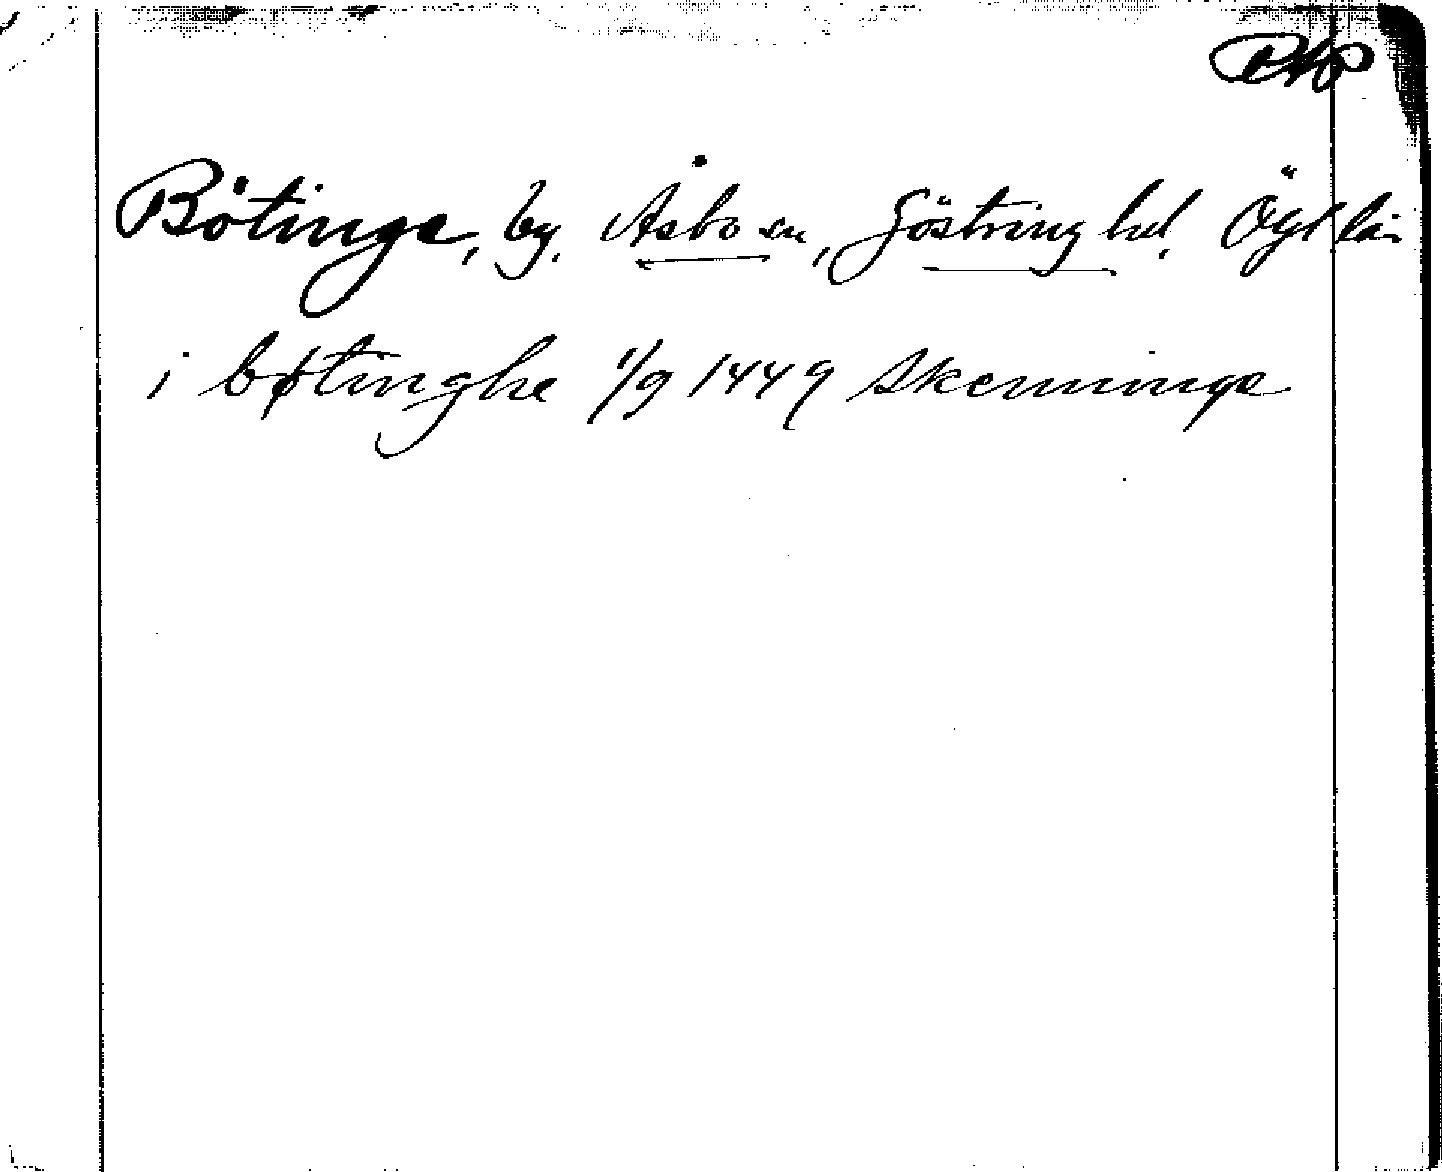 Bötinge, by. Åsbo sn, Göstring hd. Ögl län
i bøtinghe 1/9 1449 Skenninge